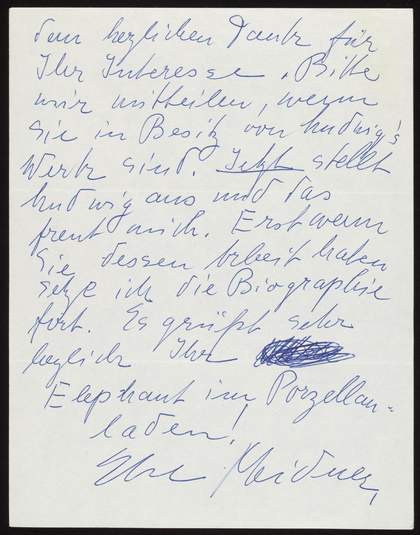 den herzlichen Dank für
Ihr Interesse. Bitte
mir mitteilen, wenn
Sie in Besitz von Ludwig's
Werk sind. Jetzt stellt
Ludwig aus und das
freut mich. Erst wenn
Sie dessen Arbeit haben
setze ich die Biographie
fort. Es grüßt sehr
herzlich Ihr
Elephant im Porzellan-
laden!
Else Meidner,